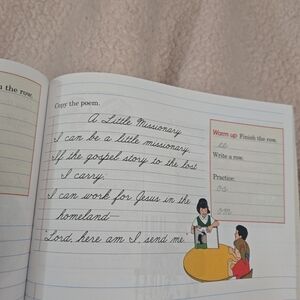 the row.
Copy the poem.
A Little Missionary
I can be a little missionary
If the gospel story to the lost
I carry;
I can work for Jesus in the
homeland—
"Lord, here am I, send me."
Warm up Finish the row.
Write a row.
Practice: